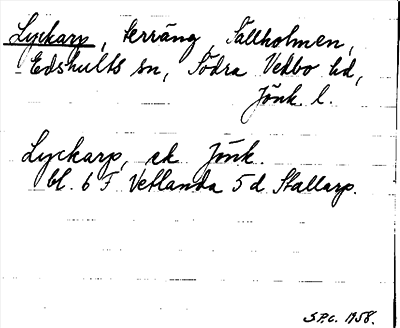 Lyckarp, terräng, Tällholmen,
Edshults sn, Södra Vedbo hd,
Jönk. l.
Lyckarp, ek Jönk.
bl. 6 F Vetlanda 5 d Stallarp.
S.P.C. 1958.